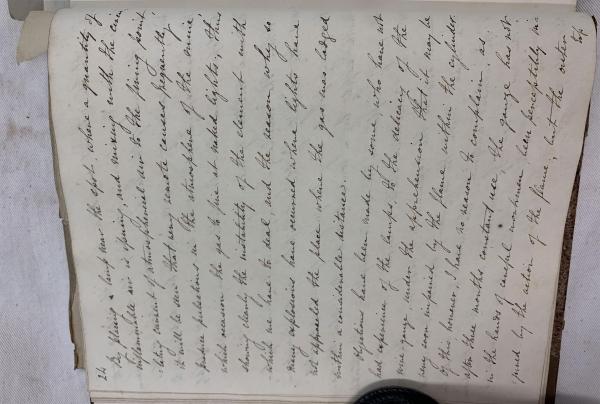 24
By placing a lamp near the spot where a quantity of
inflammable air is issuing, and mixing with the
current of atmospherical air to the firing point
it will be seen that very remote causes frequently
produce pulsations in the atmosphere of the mine,
which occasion the gas to fire at naked lights; thus
shewing clearly the instability of the element with
which we have to deal, and the reason why so
many explosions have occurred where lights have
not approached the place where the gas was lodged
within a considerable distance.
Objections have been made by some who have not
had experience of the lamps, to the delicacy of the
wire gauze under the apprehension that it may be
very soon impaired by the flame within the cylinder.
Of this, however, I have no reason to complain, as
after three months constant use, the gauze has not
in the hands of careful workmen been perceptibly in=
jured by the action of the flame; but the outer
top